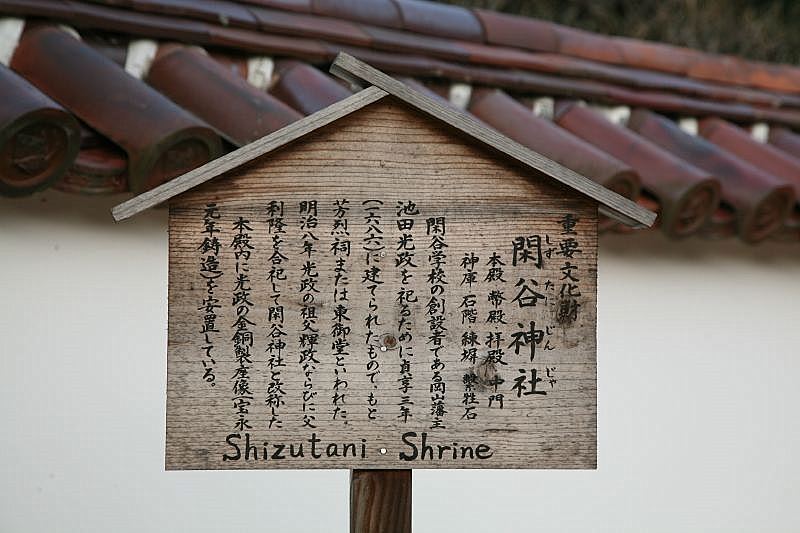 重要文化財
閑谷神社
しずたにじんじゃ
本殿 幣殿 拝殿 中門
神庫 石階 練塀 繋牲石
閑谷学校の創設者である岡山藩主
池田光政を祀るために貞享三年
(一六八六)に建てられたもので、もと
芳烈祠または東御堂といわれた。
明治八年光政の祖父輝政ならびに父
利隆を合祀して閑谷神社と改称した
本殿内に光政の金銅製座像(宝永
元年鋳造)を安置している。
Shizutani Shrine